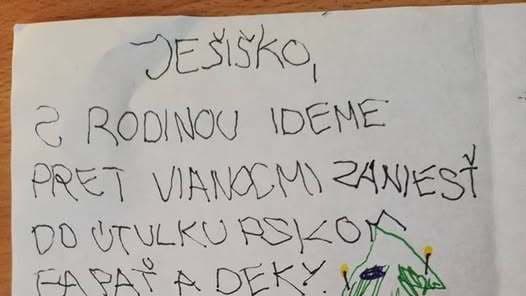 JEŠIŠKO,
S RODINOU IDEME
PRET VIANOCMI ZANIESŤ
DO ÚTULKU PSKOM
PAPAŤ A DEKY.